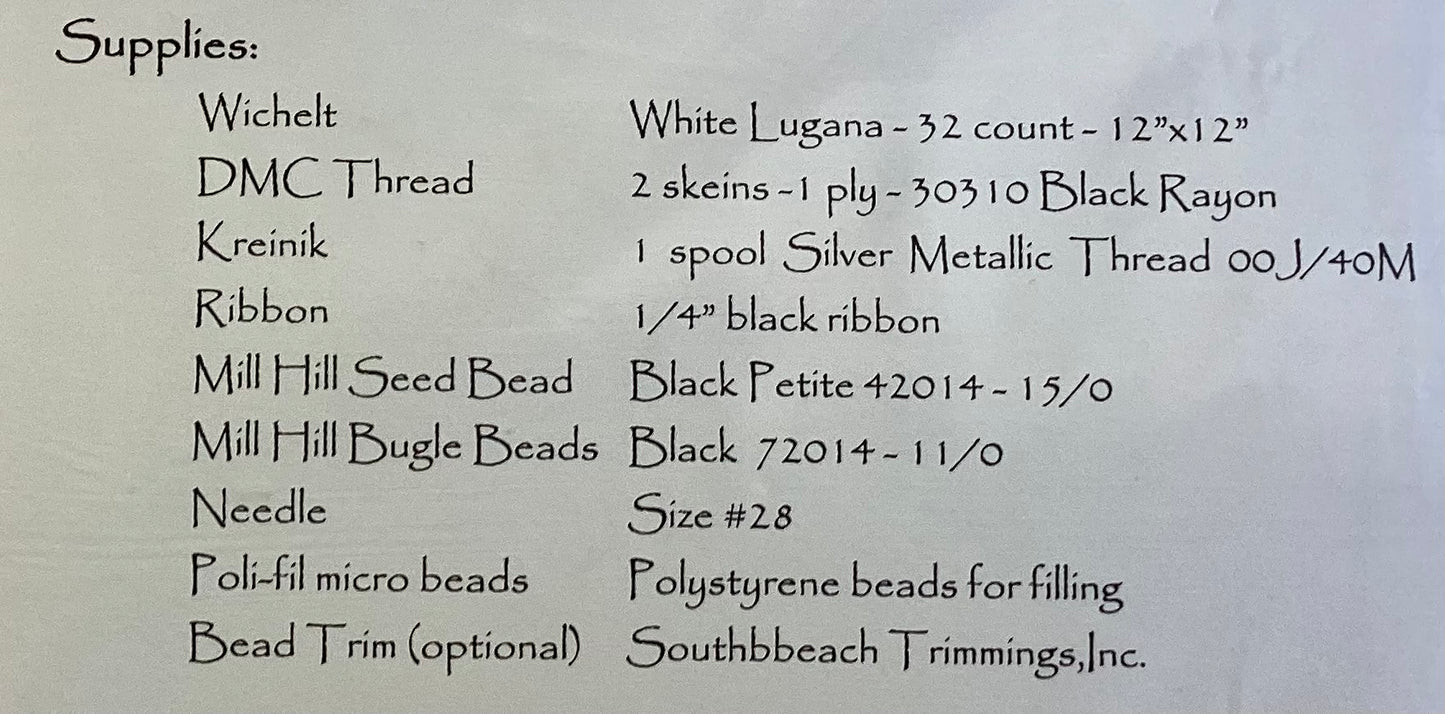 Supplies:
Wichelt White Lugana - 32 count - 12”x12”
DMC Thread 2 skeins -1 ply - 30310 Black Rayon
Kreinik 1 spool Silver Metallic Thread 00J/40M
Ribbon 1/4” black ribbon
Mill Hill Seed Bead Black Petite 42014 - 15/0
Mill Hill Bugle Beads Black 72014 - 11/0
Needle Size #28
Poli-fil micro beads Polystyrene beads for filling
Bead Trim (optional) Southbbeach Trimmings,Inc.